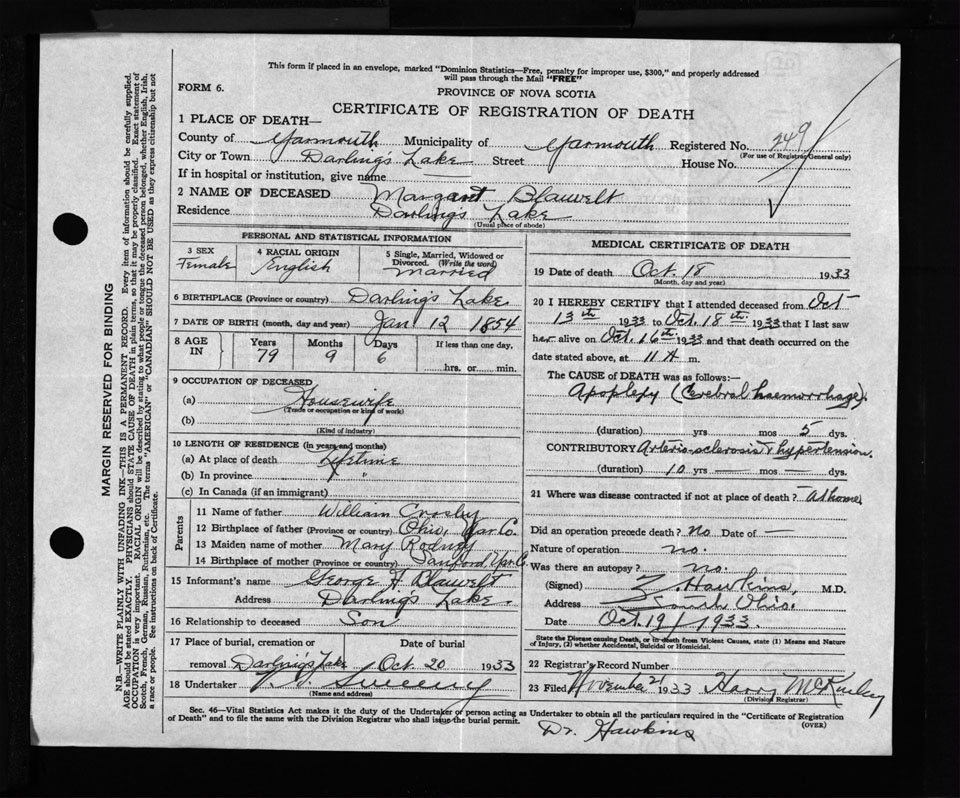 This form if placed in an envelope, marked "Dominion Statistics—Free, penalty for improper use, $300," and properly addressed
will pass through the Mail "FREE"
FORM 6.
PROVINCE OF NOVA SCOTIA
CERTIFICATE OF REGISTRATION OF DEATH
1 PLACE OF DEATH—
County of Yarmouth Municipality of Yarmouth Registered No. 249
(For use of Registrar General only)
City or Town Darling's Lake Street House No.
If in hospital or institution, give name
2 NAME OF DECEASED Margaret Blauvelt
Residence Darling's Lake
(Usual place of abode)
PERSONAL AND STATISTICAL INFORMATION
3 SEX Female
4 RACIAL ORIGIN English
5 Single, Married, Widowed or Divorced. (Write the word) Married
6 BIRTHPLACE (Province or country) Darling's Lake
7 DATE OF BIRTH (month, day and year) Jan 12 1854
8 AGE IN Years 79 Months 9 Days 6 If less than one day, hrs. or min.
9 OCCUPATION OF DECEASED
(a) Housewife
(Trade or occupation or kind of work)
(b)
(Kind of industry)
10 LENGTH OF RESIDENCE (in years and months)
(a) At place of death Lifetime
(b) In province "
(c) In Canada (if an immigrant)
Parents
11 Name of father William Crosby
12 Birthplace of father (Province or country) Ohio, Yar Co.
13 Maiden name of mother Mary Rodney
14 Birthplace of mother (Province or country) Sanford, Yar. C.
15 Informant's name George F. Blauvelt
Address Darling's Lake
16 Relationship to deceased Son
17 Place of burial, cremation or removal Darling's Lake Date of burial Oct 20 1933
18 Undertaker Sweeny
(Name and address)
MEDICAL CERTIFICATE OF DEATH
19 Date of death Oct. 18 1933
(Month, day and year)
20 I HEREBY CERTIFY that I attended deceased from Oct
13th 1933 to Oct. 18th 1933 that I last saw
her alive on Oct. 16th 1933 and that death occurred on the
date stated above, at 11 A m.
The CAUSE of DEATH was as follows:—
Apoplexy (Cerebral haemorrhage).
(duration) yrs mos 5 dys.
CONTRIBUTORY Arterio-sclerosis & hypertension.
(duration) 10 yrs mos dys.
21 Where was disease contracted if not at place of death? At home
Did an operation precede death? No Date of —
Nature of operation no.
Was there an autopsy? no.
(Signed) Z. Hawkins, M.D.
Address South Ohio.
Date Oct. 19/1933.
State the Disease causing Death, or in death from Violent Causes, state (1) Means and Nature
of Injury, (2) whether Accidental, Suicidal or Homicidal.
22 Registrar's Record Number
23 Filed November 21 1933 Harry McKinley
(Division Registrar)
Sec. 46—Vital Statistics Act makes it the duty of the Undertaker or person acting as Undertaker to obtain all the particulars required in the "Certificate of Registration
of Death" and to file the same with the Division Registrar who shall issue the burial permit.
(OVER)
Dr. Hawkins
MARGIN RESERVED FOR BINDING
N.B.—WRITE PLAINLY WITH UNFADING INK—THIS IS A PERMANENT RECORD. Every item of information should be carefully supplied.
AGE should be stated EXACTLY. PHYSICIANS should STATE CAUSE OF DEATH in plain terms, so that it may be properly classified. Exact statement of
OCCUPATION is very important. RACIAL ORIGIN will be described by stating to what people or tongue the deceased person belonged, whether English, Irish,
Scotch, French, German, Russian, Ruthenian, etc. The terms "AMERICAN" or "CANADIAN" SHOULD NOT BE USED as they express citizenship but not
a race or people. See instructions on back of Certificate.